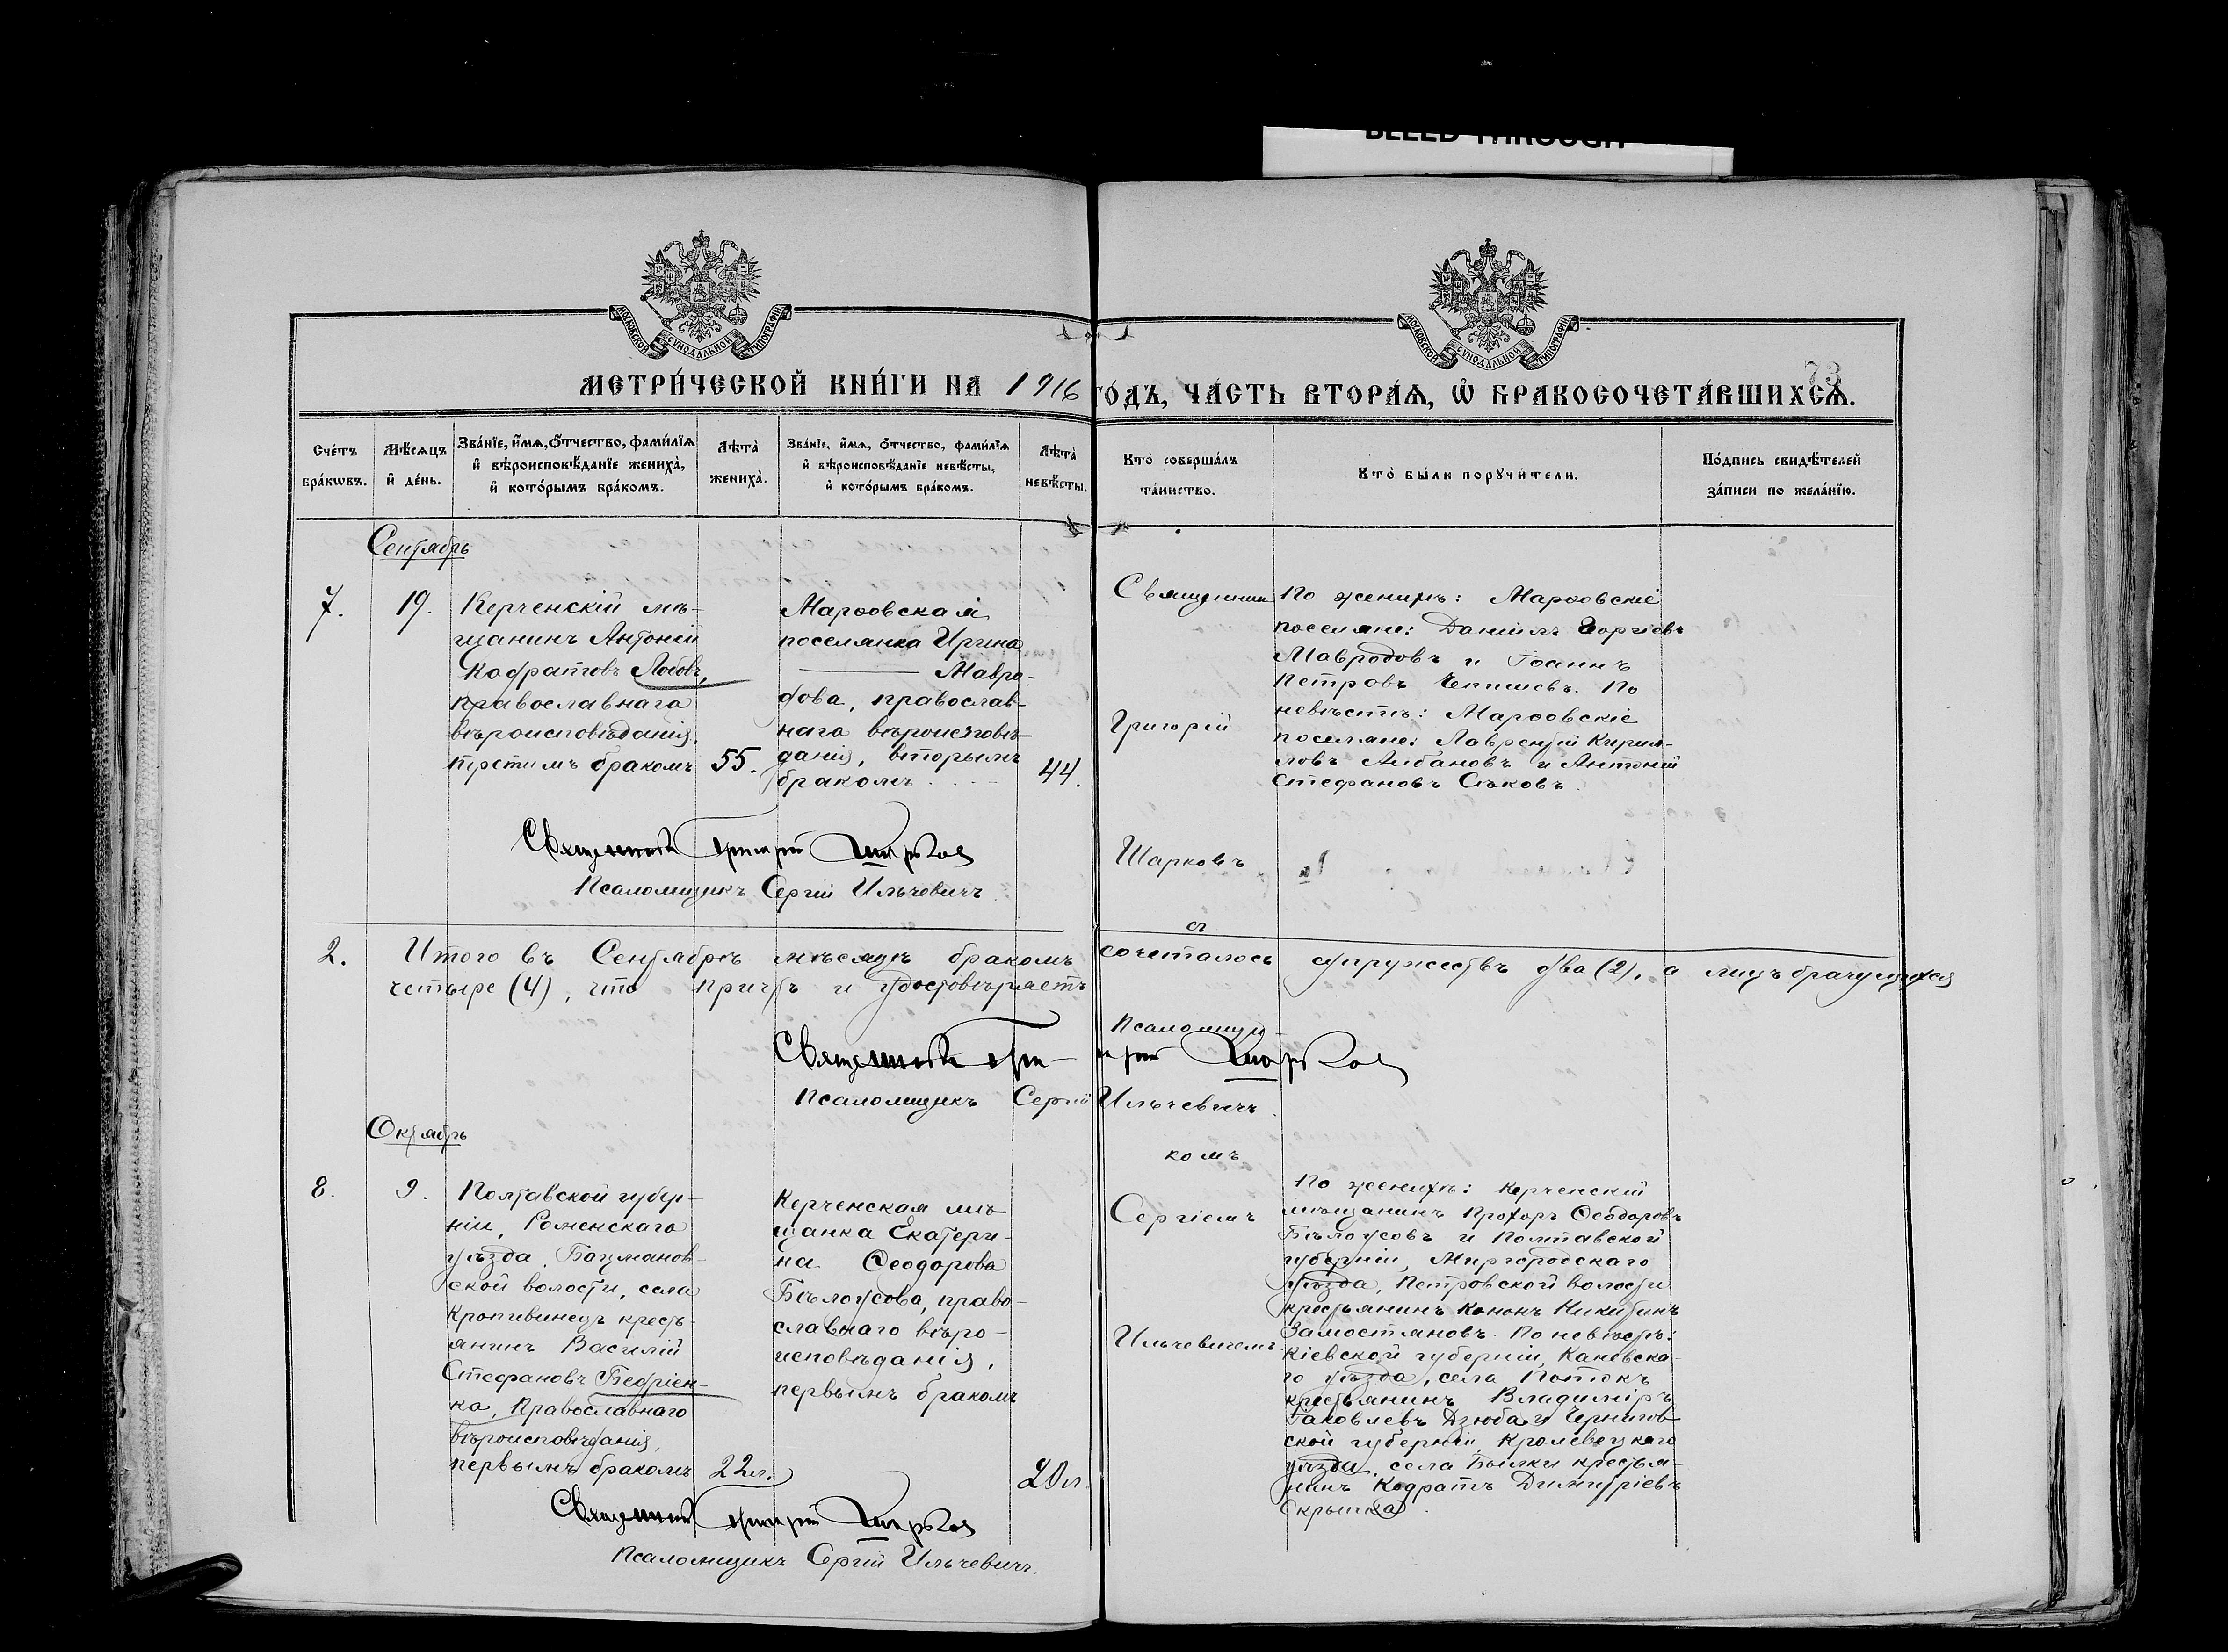 BLEED THROUGH
МОСКОВСКОЙ СѴНОДАЛЬНОЙ ТИПОГРАФІИ
МОСКОВСКОЙ СѴНОДАЛЬНОЙ ТИПОГРАФІИ
73
МЕТРИ́ЧЕСКОЙ КНИ́ГИ НА 1916 ГО́ДЪ, ЧА́СТЬ ВТОРА́Ѧ, Ѡ БРАКОСОЧЕТА́ВШИХСѦ.
Сче́тъ бра́кωвъ.
Мѣ́сѧцъ и де́нь.
Зва́нїе, и́мѧ, о́тчество, фами́лїѧ и вѣроисповѣ́данїе жениха̀, и кото́рымъ бра́комъ.
Лѣта̀ жениха̀.
Зва́нїе, и́мѧ, о́тчество, фами́лїѧ и вѣроисповѣ́данїе невѣ́сты, и кото́рымъ бра́комъ.
Лѣта̀ невѣ́сты.
Кто̀ соверша́лъ та́инство.
Кто̀ бы́ли порꙋчи́тели.
По́дпись свидѣ́телей за́писи по жела́нїю.
Сентябрь
7.
19.
Керченскій мѣ-
щанинъ Антоній
Кодратовъ Лобовъ,
православнаго
вѣроисповѣданія,
третимъ бракомъ
55.
Марѳовская
поселянка Ирина
Мавро-
дова, православ-
наго вѣроисповѣ-
данія, вторымъ
бракомъ
44.
Священник
Григорій
Шарковъ
съ
По женихѣ: Марѳовскіе
поселяне: Даніилъ Георгіевъ
Мавродовъ и Іоаннъ
Петровъ По
невѣстѣ: Марѳовскіе
поселяне: Лаврентій Кирил-
ловъ и Антоній
Стефановъ
Священникъ Григорій Шарков
Псаломщикъ Сергій Ильчевичъ
2.
Итого въ Сентябрѣ мѣсяцѣ бракомъ сочеталось супружествъ два (2), а лицъ брачущихся
четыре (4), что причтъ и удостовѣряетъ
Псаломщи-
Священникъ Григорій Шарков
Псаломщикъ Сергій Ильчевичъ
Октябрь
8.
9.
Полтавской губер-
ніи, Роменскаго
уѣзда, Бацманов-
ской волости, села
Кропивинецъ кресть-
янинъ Василій
Стефановъ
ка, Православнаго
вѣроисповѣданія,
первымъ бракомъ
22л.
Керченская мѣ
щанка Екатери-
на Ѳеодорова
Бѣлоусова, право-
славнаго вѣро-
исповѣданія,
первымъ бракомъ
20л.
комъ
Сергіемъ
Ильчевичемъ
По женихѣ: Керченскій
мѣщанинъ Прохоръ Ѳеодоровъ
Бѣлоусовъ и Полтавской
губерніи, Миргородскаго
уѣзда, Петровской волости
крестьянинъ Кононъ Никитинъ
Замостяновъ. По невѣстѣ:
Кіевской губерніи, Каневска-
го уѣзда, села Потокъ
крестьянинъ Владиміръ
Іаковлевъ Дзюба и Чернигов-
ской губерніи, Кролевецкаго
уѣзда, села крестья-
нинъ Кодратъ Димитріевъ
Скрыпка
Священникъ Григорій Шарков
Псаломщикъ Сергій Ильчевичъ.